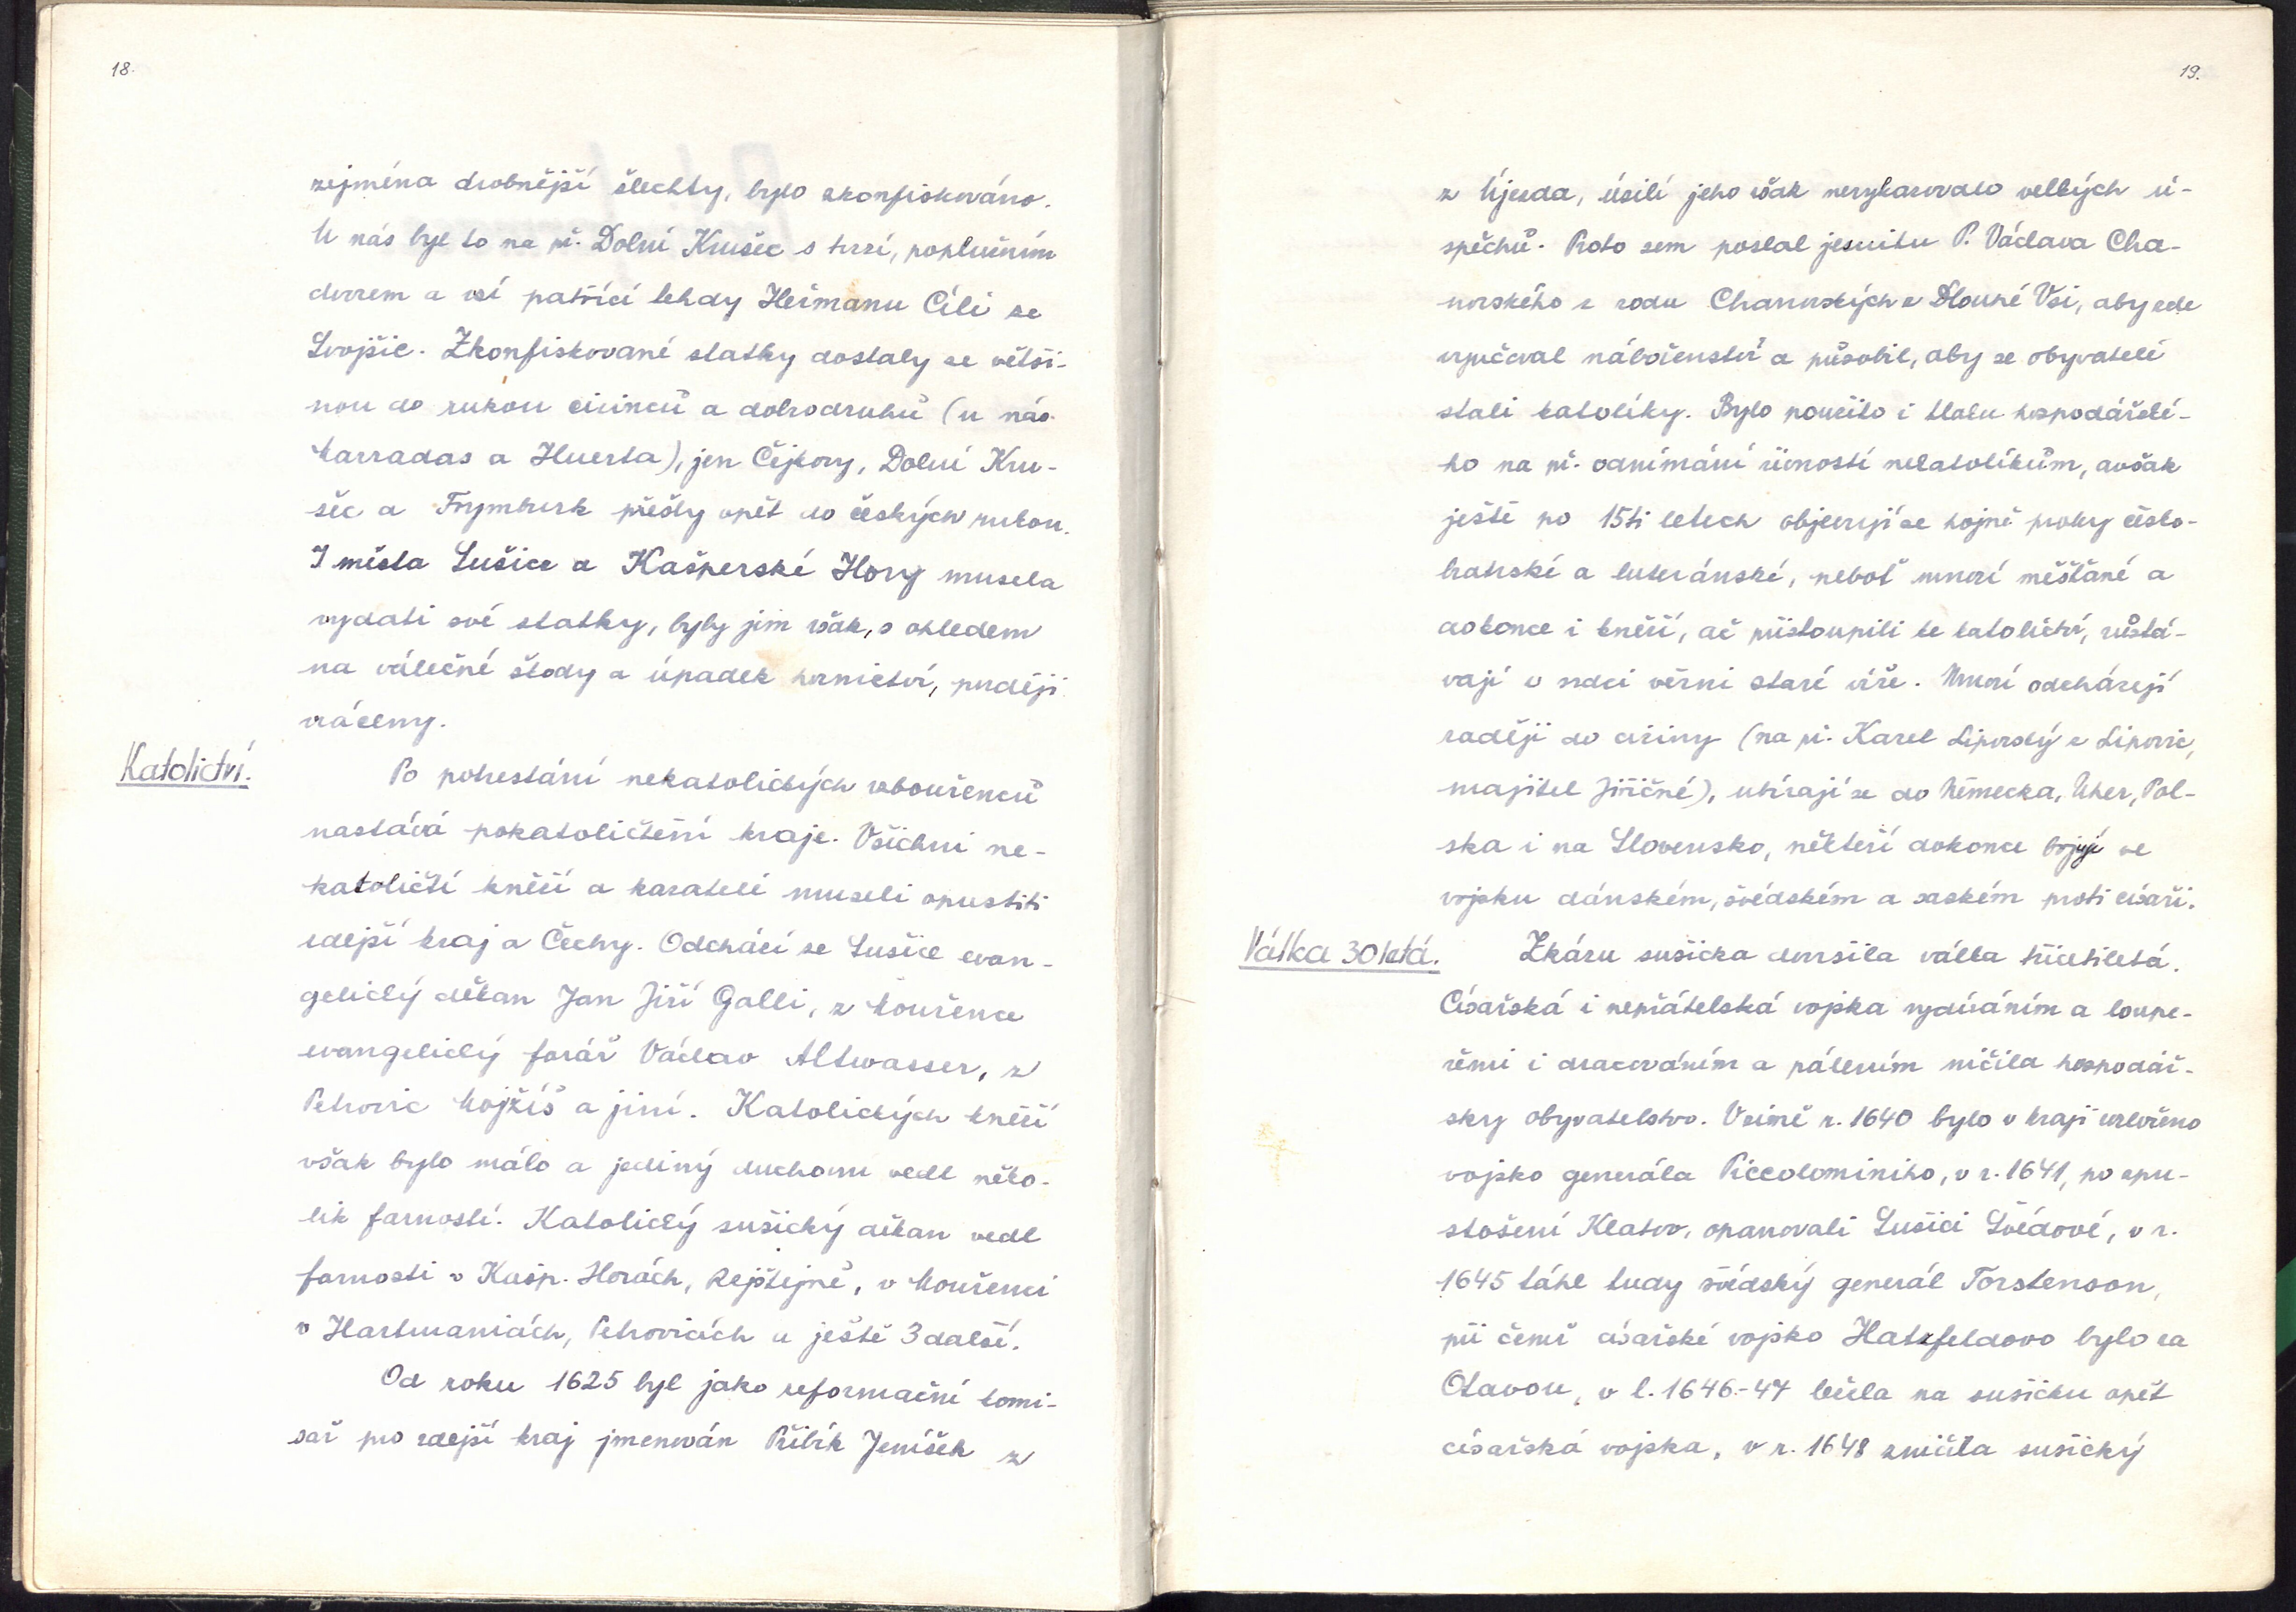 18.
zejména drobnější šlechty, bylo zkonfiskováno.
U nás byl to na př. Dolní Krušec s tvrzí, poplužním
dvorem a vsí patřící tehdy Heřmanu Cíli ze
Svojšic. Zkonfiskované statky dostaly se větši-
nou do rukou cizinců a dobrodruhů (u nás
Marradas a Huerta), jen Čejkovy, Dolní Kru-
šec a Frymburk přešly opět do českých rukou.
I města Sušice a Kašperské Hory musela
vydati své statky, byly jim však, s ohledem
na válečné škody a úpadek hornictví, později
vráceny.
Katolictví.
Po potrestání nekatolických vzbouřenců
nastává pokatoličtění kraje. Všichni ne-
katoličtí kněží a kazatelé museli opustiti
zdejší kraj a Čechy. Odchází ze Sušice evan-
gelický děkan Jan Jiří Galli, z Mouřence
evangelický farář Václav Altwasser, z
Petrovic Mojžíš a jiní. Katolických kněží
však bylo málo a jediný duchovní vedl něko-
lik farností. Katolický sušický děkan vedl
farnosti v Kašp. Horách, Rejštejně, v Mouřenci
v Hartmanicích, Petrovicích a ještě 3 další.
Od roku 1625 byl jako reformační komi-
sař pro zdejší kraj jmenován Přibík Jeníšek z
19.
z Újezda, úsilí jeho však nevykazovalo velkých ú-
spěchů. Proto sem poslal jesuitu P. Václava Cha-
novského z rodu Chanovských z Dlouhé Vsi, aby zde
vyučoval náboženství a působil, aby se obyvatelé
stali katolíky. Bylo použito i tlaku hospodářské-
ho na př. odnímání živností nekatolíkům, avšak
ještě po 15ti letech objevují se hojné prvky česko-
bratrské a luteránské, neboť mnozí měšťané a
dokonce i kněží, ač přistoupili ke katolictví, zůstá-
vají v srdci věrni staré víře. Mnozí odcházejí
raději do ciziny (na př. Karel Lipovský z Lipovic,
majitel Jiřičné), ubírají se do Německa, Uher, Pol-
ska i na Slovensko, někteří dokonce bojují ve
vojsku dánském, švédském a saském proti císaři.
Válka 30letá.
Zkázu sušicka dovršila válka třicetiletá.
Císařská i nepřátelská vojska vydíráním a loupe-
žemi i drancováním a pálením ničila hospodář-
sky obyvatelstvo. V zimě r. 1640 bylo v kraji
vojsko generála Piccolominiho, v r. 1641, po zpu-
stošení Klatov, opanovali Sušici Švédové, v r.
1645 táhl tudy švédský generál Torstenson,
při čemž císařské vojsko Hatzfeldovo bylo za
Otavou, v l. 1646.-47 ležela na sušicku opět
císařská vojska, v r. 1648 zničila sušický